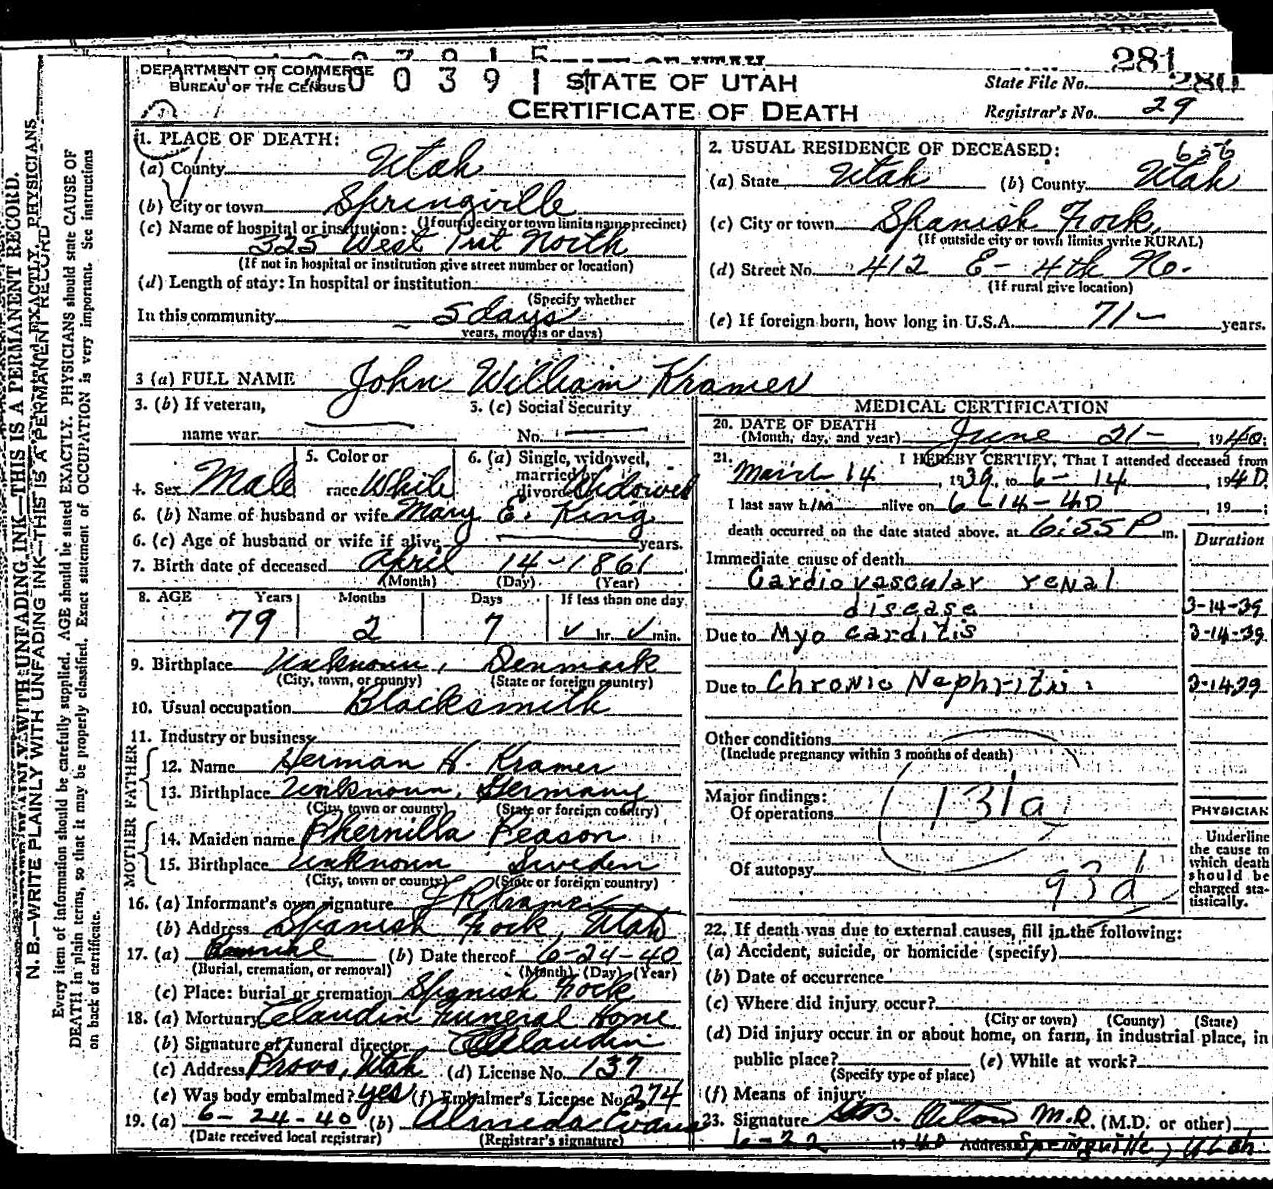 281
DEPARTMENT OF COMMERCE
BUREAU OF THE CENSUS
0 0 3 9 1
STATE OF UTAH
CERTIFICATE OF DEATH
State File No. 280
Registrar's No. 29
1. PLACE OF DEATH:
(a) County Utah
(b) City or town Springville
(If outside city or town limits name precinct)
(c) Name of hospital or institution:
325 West 1st North
(If not in hospital or institution give street number or location)
(d) Length of stay: In hospital or institution
(Specify whether
In this community 5 days
years, months or days)
2. USUAL RESIDENCE OF DECEASED:
(a) State Utah (b) County Utah
(c) City or town Spanish Fork
(If outside city or town limits write RURAL)
(d) Street No. 412 E- 4th No.
(If rural give location)
(e) If foreign born, how long in U.S.A. 71 - years.
3 (a) FULL NAME John William Kramer
3. (b) If veteran,
name war
3. (c) Social Security
No.
4. Sex Male
5. Color or
race White
6. (a) Single, widowed,
married or
divorced Widowed
6. (b) Name of husband or wife Mary E. King
6. (c) Age of husband or wife if alive years.
7. Birth date of deceased April 14-1861
(Month) (Day) (Year)
8. AGE Years Months Days If less than one day
79 2 7 hr. min.
9. Birthplace Unknown, Denmark
(City, town, or county) (State or foreign country)
10. Usual occupation Blacksmith
11. Industry or business
FATHER
12. Name Herman H. Kramer
13. Birthplace Unknown, Germany
(City, town or county) (State or foreign country)
MOTHER
14. Maiden name Phernilla Peason
15. Birthplace Unknown Sweden
(City, town or county) (State or foreign country)
16. (a) Informant's own signature Kramer
(b) Address Spanish Fork, Utah
17. (a) (b) Date thereof 6-24-40
(Burial, cremation, or removal) (Month) (Day) (Year)
(c) Place: burial or cremation Spanish Fork
18. (a) Mortuary Claudin Funeral Home
(b) Signature of funeral director Claudin
(c) Address Provo, Utah (d) License No. 137
(e) Was body embalmed? yes (f) Embalmer's License No. 274
19. (a) 6-24-40 (b) Almeda Evans
(Date received local registrar) (Registrar's signature)
MEDICAL CERTIFICATION
20. DATE OF DEATH
(Month, day, and year) June 21- 1940;
21. I HEREBY CERTIFY, That I attended deceased from
March 14, 1939, to 6-14, 1940.
I last saw him alive on 6-14-40, 19 ;
death occurred on the date stated above, at 6:55 P m.
Duration
Immediate cause of death
Cardiovascular renal
disease 3-14-39
Due to Myocarditis 3-14-39
Due to Chronic Nephritis 3-14-39
Other conditions
(Include pregnancy within 3 months of death)
Major findings:
Of operations
131a
Of autopsy
93d
PHYSICIAN
Underline
the cause to
which death
should be
charged sta-
tistically.
22. If death was due to external causes, fill in the following:
(a) Accident, suicide, or homicide (specify)
(b) Date of occurrence
(c) Where did injury occur?
(City or town) (County) (State)
(d) Did injury occur in or about home, on farm, in industrial place, in
public place? (e) While at work?
(Specify type of place)
(f) Means of injury
23. Signature M.D. (M.D. or other)
6-22 1940 Address Springville, Utah
N. B.—WRITE PLAINLY WITH UNFADING INK—THIS IS A PERMANENT RECORD.
Every item of information should be carefully supplied. AGE should be stated EXACTLY. PHYSICIANS should state CAUSE OF
DEATH in plain terms, so that it may be properly classified. Exact statement of OCCUPATION is very important. See instructions
on back of certificate.